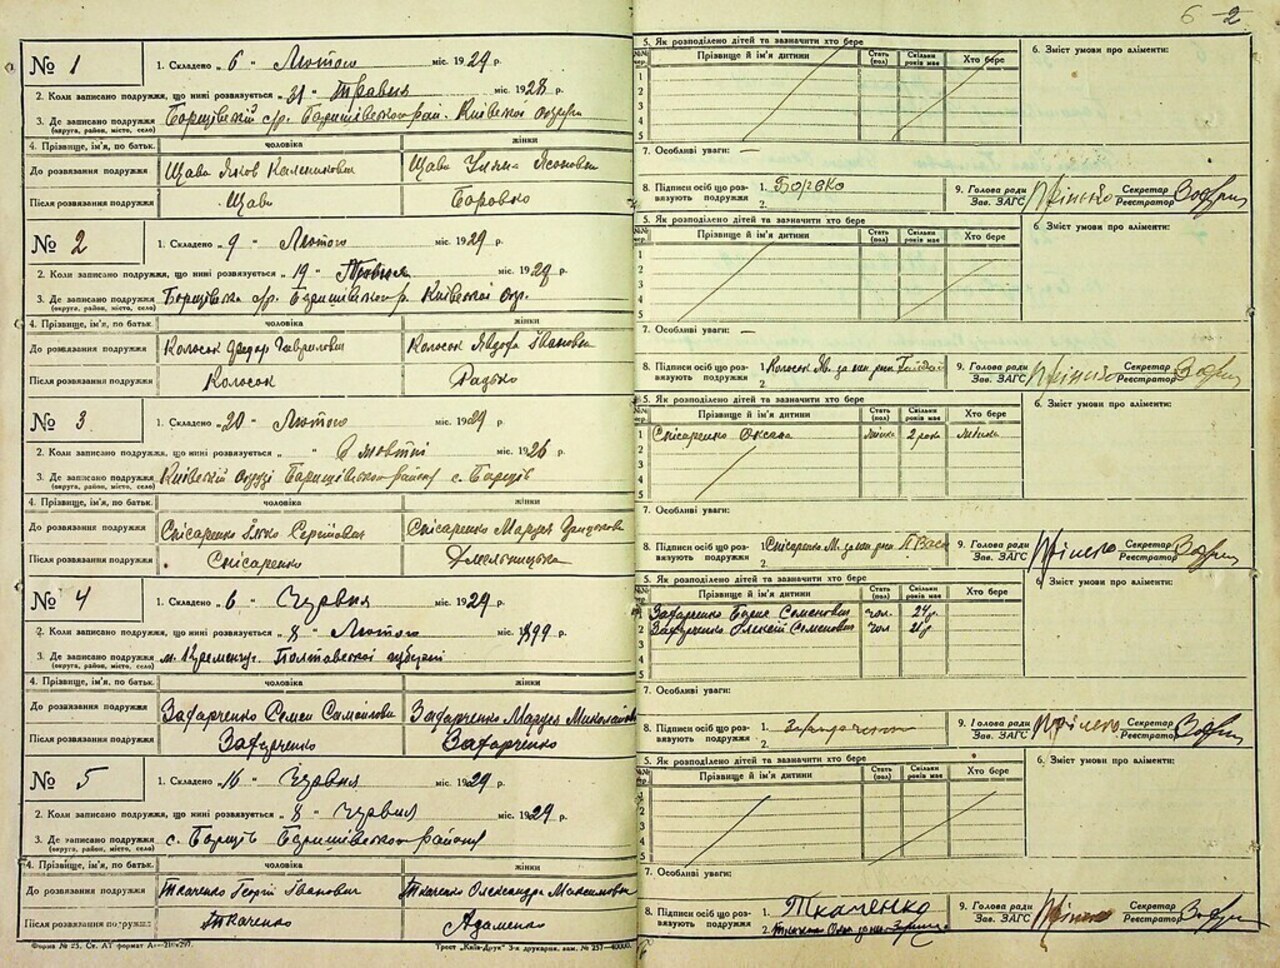 6 2
№ 1
1. Складено „ 6 " Лютого міс. 1929 р.
2. Коли записано подружжя, що нині розвязується „ 31 " Травня міс. 1928 р.
3. Де записано подружжя Борщівській с/р. Баришівського рай. Київської округи
(округа, район, місто, село)
4. Прізвище, ім'я, по батьк. чоловіка жінки
До розвязання подружжя Щава Яков Каленикович Щава Уляна Ясоновна
Після розвязання подружжя Щава Боровко
5. Як розподілено дітей та зазначити хто бере
№№ чер. Прізвище й ім'я дитини Стать (пол) Скільки років має Хто бере
1
2
3
4
5
6. Зміст умови про аліменти:
7. Особливі уваги: —
8. Підписи осіб що розвязують подружжя 1. 2.
9. Голова ради Зав. ЗАГС Секретар Реєстратор
№ 2
1. Складено „ 9 " Лютого міс. 1929 р.
2. Коли записано подружжя, що нині розвязується „ 19 " міс. 1929 р.
3. Де записано подружжя Борщівська с/р. Баришівського р. Київської окр.
(округа, район, місто, село)
4. Прізвище, ім'я, по батьк. чоловіка жінки
До розвязання подружжя Колосок Федор Гаврилович Колосок Явдоха Івановна
Після розвязання подружжя Колосок Радько
5. Як розподілено дітей та зазначити хто бере
№№ чер. Прізвище й ім'я дитини Стать (пол) Скільки років має Хто бере
1
2
3
4
5
6. Зміст умови про аліменти:
7. Особливі уваги: —
8. Підписи осіб що розвязують подружжя 1. Колосок Яв. 2.
9. Голова ради Зав. ЗАГС Секретар Реєстратор
№ 3
1. Складено „ 20 " Лютого міс. 1929 р.
2. Коли записано подружжя, що нині розвязується „ " в жовтні міс. 1926 р.
3. Де записано подружжя Київській окрузі Баришівського району с. Борщів
(округа, район, місто, село)
4. Прізвище, ім'я, по батьк. чоловіка жінки
До розвязання подружжя Снісаренко Ілько Сергійович Снісаренко Маруся
Після розвязання подружжя Снісаренко Омельницька
5. Як розподілено дітей та зазначити хто бере
№№ чер. Прізвище й ім'я дитини Стать (пол) Скільки років має Хто бере
1 Снісаренко Оксана жінка 2 роки
2
3
4
5
6. Зміст умови про аліменти:
7. Особливі уваги:
8. Підписи осіб що розвязують подружжя 1. Снісаренко М. 2.
9. Голова ради Зав. ЗАГС Секретар Реєстратор
№ 4
1. Складено „ 6 " Червня міс. 1929 р.
2. Коли записано подружжя, що нині розвязується „ 8 " Лютого міс. 1899 р.
3. Де записано подружжя м. Кременчуг. Полтавської губернії
(округа, район, місто, село)
4. Прізвище, ім'я, по батьк. чоловіка жінки
До розвязання подружжя Захарченко Семен Самойлович Захарченко Маруся Миколаївна
Після розвязання подружжя Захарченко Захарченко
5. Як розподілено дітей та зазначити хто бере
№№ чер. Прізвище й ім'я дитини Стать (пол) Скільки років має Хто бере
1 Захарченко Борис Семенович чол. 24 р.
2 Захарченко Олексій Семенович чол 21 р
3
4
5
6. Зміст умови про аліменти:
7. Особливі уваги:
8. Підписи осіб що розвязують подружжя 1. 2.
9. Голова ради Зав. ЗАГС Секретар Реєстратор
№ 5
1. Складено „ 16 " Червня міс. 1929 р.
2. Коли записано подружжя, що нині розвязується „ 8 " Червня міс. 1929 р.
3. Де записано подружжя с. Борщів Баришівського району
(округа, район, місто, село)
4. Прізвище, ім'я, по батьк. чоловіка жінки
До розвязання подружжя Ткаченко Георгій Іванович Ткаченко Олександра Максимовна
Після розвязання подружжя Ткаченко Адаменко
5. Як розподілено дітей та зазначити хто бере
№№ чер. Прізвище й ім'я дитини Стать (пол) Скільки років має Хто бере
1
2
3
4
5
6. Зміст умови про аліменти:
7. Особливі уваги:
8. Підписи осіб що розвязують подружжя 1. Ткаченко 2.
9. Голова ради Зав. ЗАГС Секретар Реєстратор
Форма № 23. Ст. АТ формат А₄—210×297. Трест „Київ-Друк" 3-я друкарня. зам. № 257—40000.